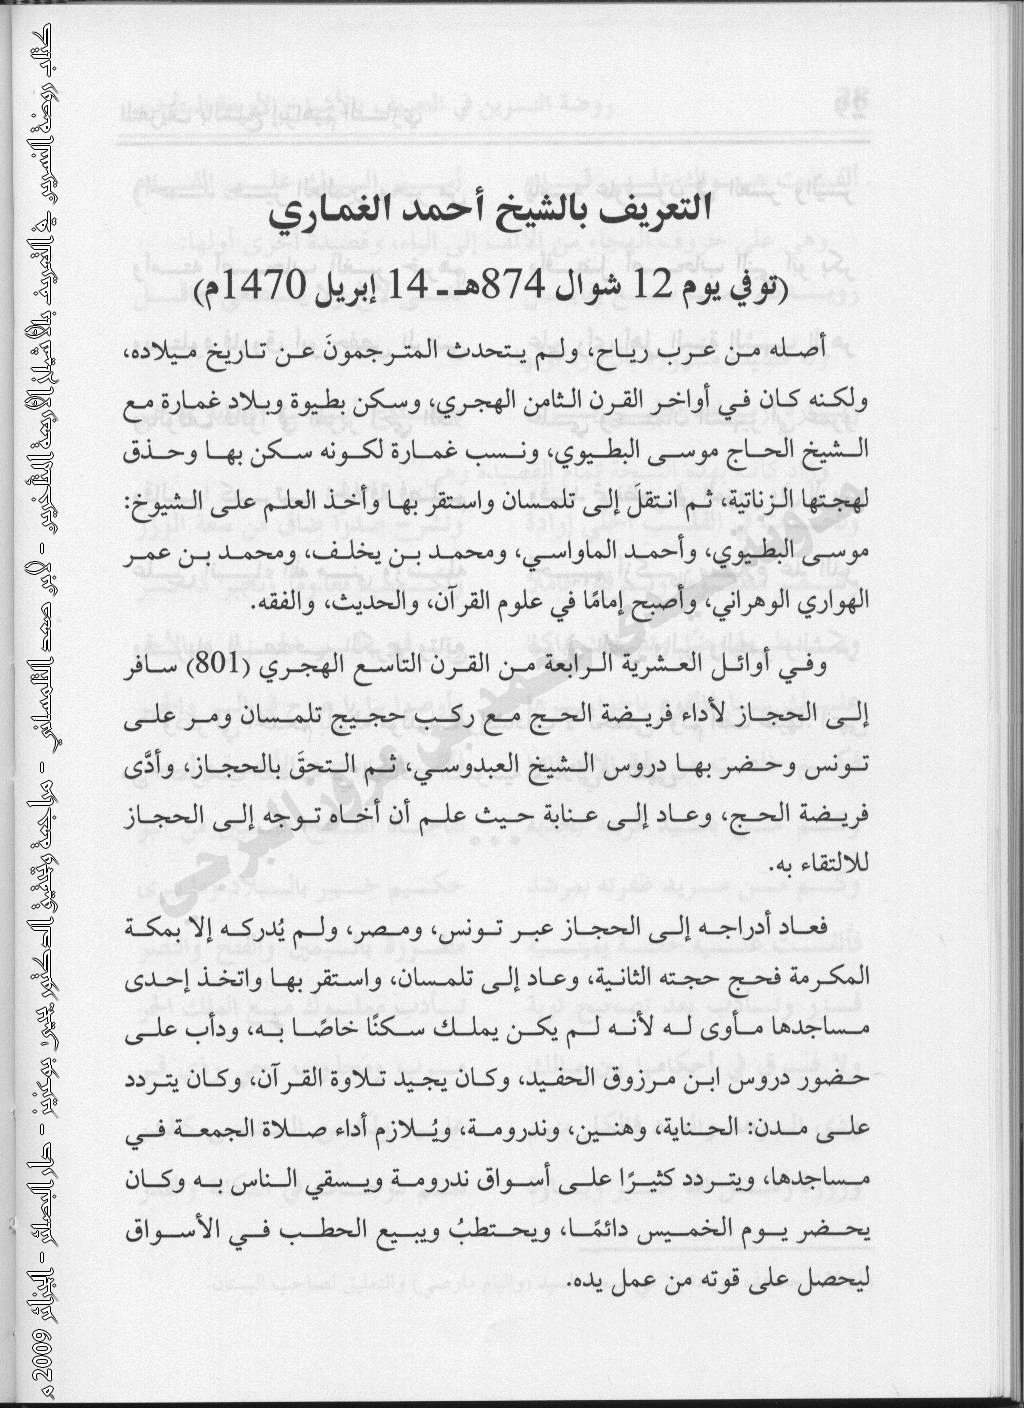 التعريف بالشيخ أحمد الغماري
(توفي يوم 12 شوال 874هـ - 14 إبريل 1470م)
أصله من عرب رياح، ولم يتحدث المترجمونَ عن تاريخ ميلاده،
ولكنه كان في أواخر القرن الثامن الهجري، وسكن بطيوة وبلاد غمارة مع
الشيخ الحاج موسى البطيوي، ونسب غمارة لكونه سكن بها وحذق
لهجتها الزناتية، ثم انتقلَ إلى تلمسان واستقر بها وأخذ العلم على الشيوخ:
موسى البطيوي، وأحمد الماواسي، ومحمد بن يخلف، ومحمد بن عمر
الهواري الوهراني، وأصبح إمامًا في علوم القرآن، والحديث، والفقه.
وفي أوائل العشرية الرابعة من القرن التاسع الهجري (801) سافر
إلى الحجاز لأداء فريضة الحج مع ركب حجيج تلمسان ومر على
تونس وحضر بها دروس الشيخ العبدوسي، ثم التحقَ بالحجاز، وأدَّى
فريضة الحج، وعاد إلى عنابة حيث علم أن أخاه توجه إلى الحجاز
للالتقاء به.
فعاد أدراجه إلى الحجاز عبر تونس، ومصر، ولم يُدركه إلا بمكة
المكرمة فحج حجته الثانية، وعاد إلى تلمسان، واستقر بها واتخذ إحدى
مساجدها مأوى له لأنه لم يكن يملك سكنًا خاصًا به، ودأب على
حضور دروس ابن مرزوق الحفيد، وكان يجيد تلاوة القرآن، وكان يتردد
على مدن: الحناية، وهنين، وندرومة، ويُلازم أداء صلاة الجمعة في
مساجدها، ويتردد كثيرًا على أسواق ندرومة ويسقي الناس به وكان
يحضر يوم الخميس دائمًا، ويحتطبُ ويبيع الحطب في الأسواق
ليحصل على قوته من عمل يده.
كتاب روضة النسرين في التعريف بالأشياخ الأربعة المتأخرين - لابن صعد التلمساني - مراجعة وتحقيق الدكتور يحيى بوعزيز - دار البصائر - الجزائر 2009 م